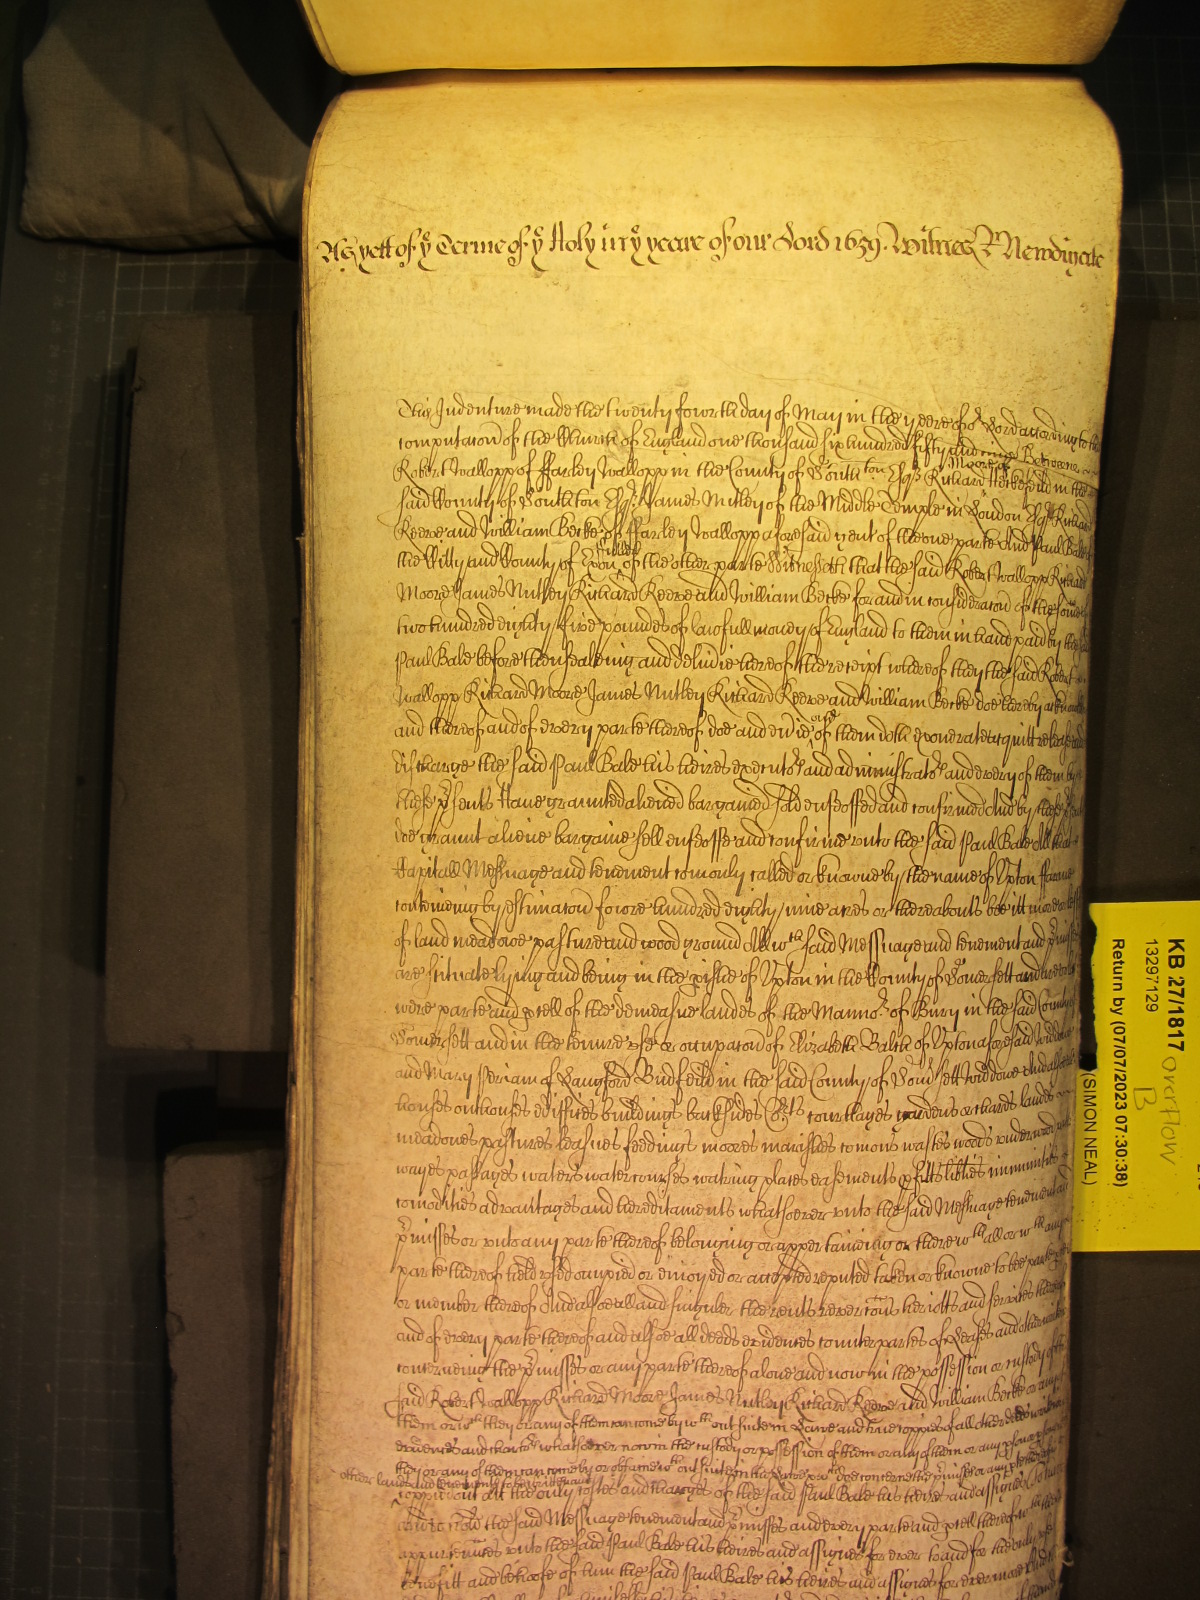 As yett of ye Terme of ye Holy in ye yeare of our Lord 1659. Witnes R Newdigate
This Indenture made the twenty fowrth day of May in the yeere of or Lord according to the
computacon of the Church of England one thousand six hundred fifty and nine Betweene
Robert Wallopp of Farley Wallopp in the County of Southton Esqr Richard Moore of Heckfeild in the
said County of Southton Esqr James Nutley of the Middle Temple in London Esqr Richard
Keeve and William Becke of Farley Wallopp aforesaid gent of the one parte And Paul Bale
the Citty and County of Exon Fuller of the other parte Witnesseth that the said Robert Wallopp Richard
Moore James Nutley Richard Keeve and William Becke for and in consideracon of the some
two hundred eighty five poundes of lawfull money of England to them in hand paid by the
Paul Bale before thensealeing and deliverie hereof the receipt whereof they the said Robert
Wallopp Richard Moore James Nutley Richard Keeve and William Becke doe hereby acknowl
and thereof and of every parte thereof doe and evie one of them doth exonerate acquitt release
discharge the said Paul Bale his heires executors and administrators and every of them by
these psents Have graunted aliened bargained sold enfeoffed and confirmed And by these
doe graunt aliene bargaine sell enfeoffe and confirme unto the said Paul Bale All that
Capitall Messuage and tenement comonly called or knowne by the name of Upton Farme
conteineing by estimacon fowre hundred eighty nine acres or thereabouts bee itt more or lesse
of land meadowe pasture and wood ground All wch said Messuage and tenement and pmisses
are situate lying and being in the pishe of Upton in the County of Somersett and
were parte and pcell of the demeasne landes of the Mannor of Bury in the said County of
Somersett and in the tenure use or occupacon of Elizabeth Balch of Upton aforesaid widdowe
and Mary Periam of Langford Budfeild in the said County of Somersett widdowe And all
houses outhouses edifices buildings backsides Courts courtlages gardens orchards landes
meadowes pastures leasues feedings moores marishes comons wastes woods underwoods
wayes passages waters watercourses watering places easements pfitts libties immunities
comodities advantages and hereditaments whatsoever unto the said Messuage tenement and
pmisses or unto any parte thereof belonging or apperteineing or therewth all or wth any
parte thereof held used occupied or enioyed or accepted reputed taken or knowne to bee parte
or member thereof And alsoe all and singuler the rents revercons heriotts and services thereof
and of every parte thereof and alsoe all deeds evidences counterpartes of Leases and
concerneing the pmisses or any parte thereof alone and now in the possession or custody of the
said Robert Wallopp Richard Moore James Nutley Richard Keeve and William Becke or any of
them or wch they or any of them can come by wthout suite in Lawe and true coppies of all other deeds
evidences and whatsoever now in the custody or possession of them or any of them or any
they or any of them can come by or obtaine wthout suite in the Lawe doe concerne the pmisses or any
other landes and tenements to be written
coppied out att the only costes and charges of the said Paul Bale his heires and assignes To have
and to hold the said Messuage tenement and pmisses and every parte and pcell thereof wth
appurtences unto the said Paul Bale his heires and assignes for ever to and for the only use
benefitt and behoofe of him the said Paul Bale his heires and assignes for evermore
KB 27/1817
13297129
Return by (07/07/2023 07:30:38)
(SIMON NEAL)
overflow
B